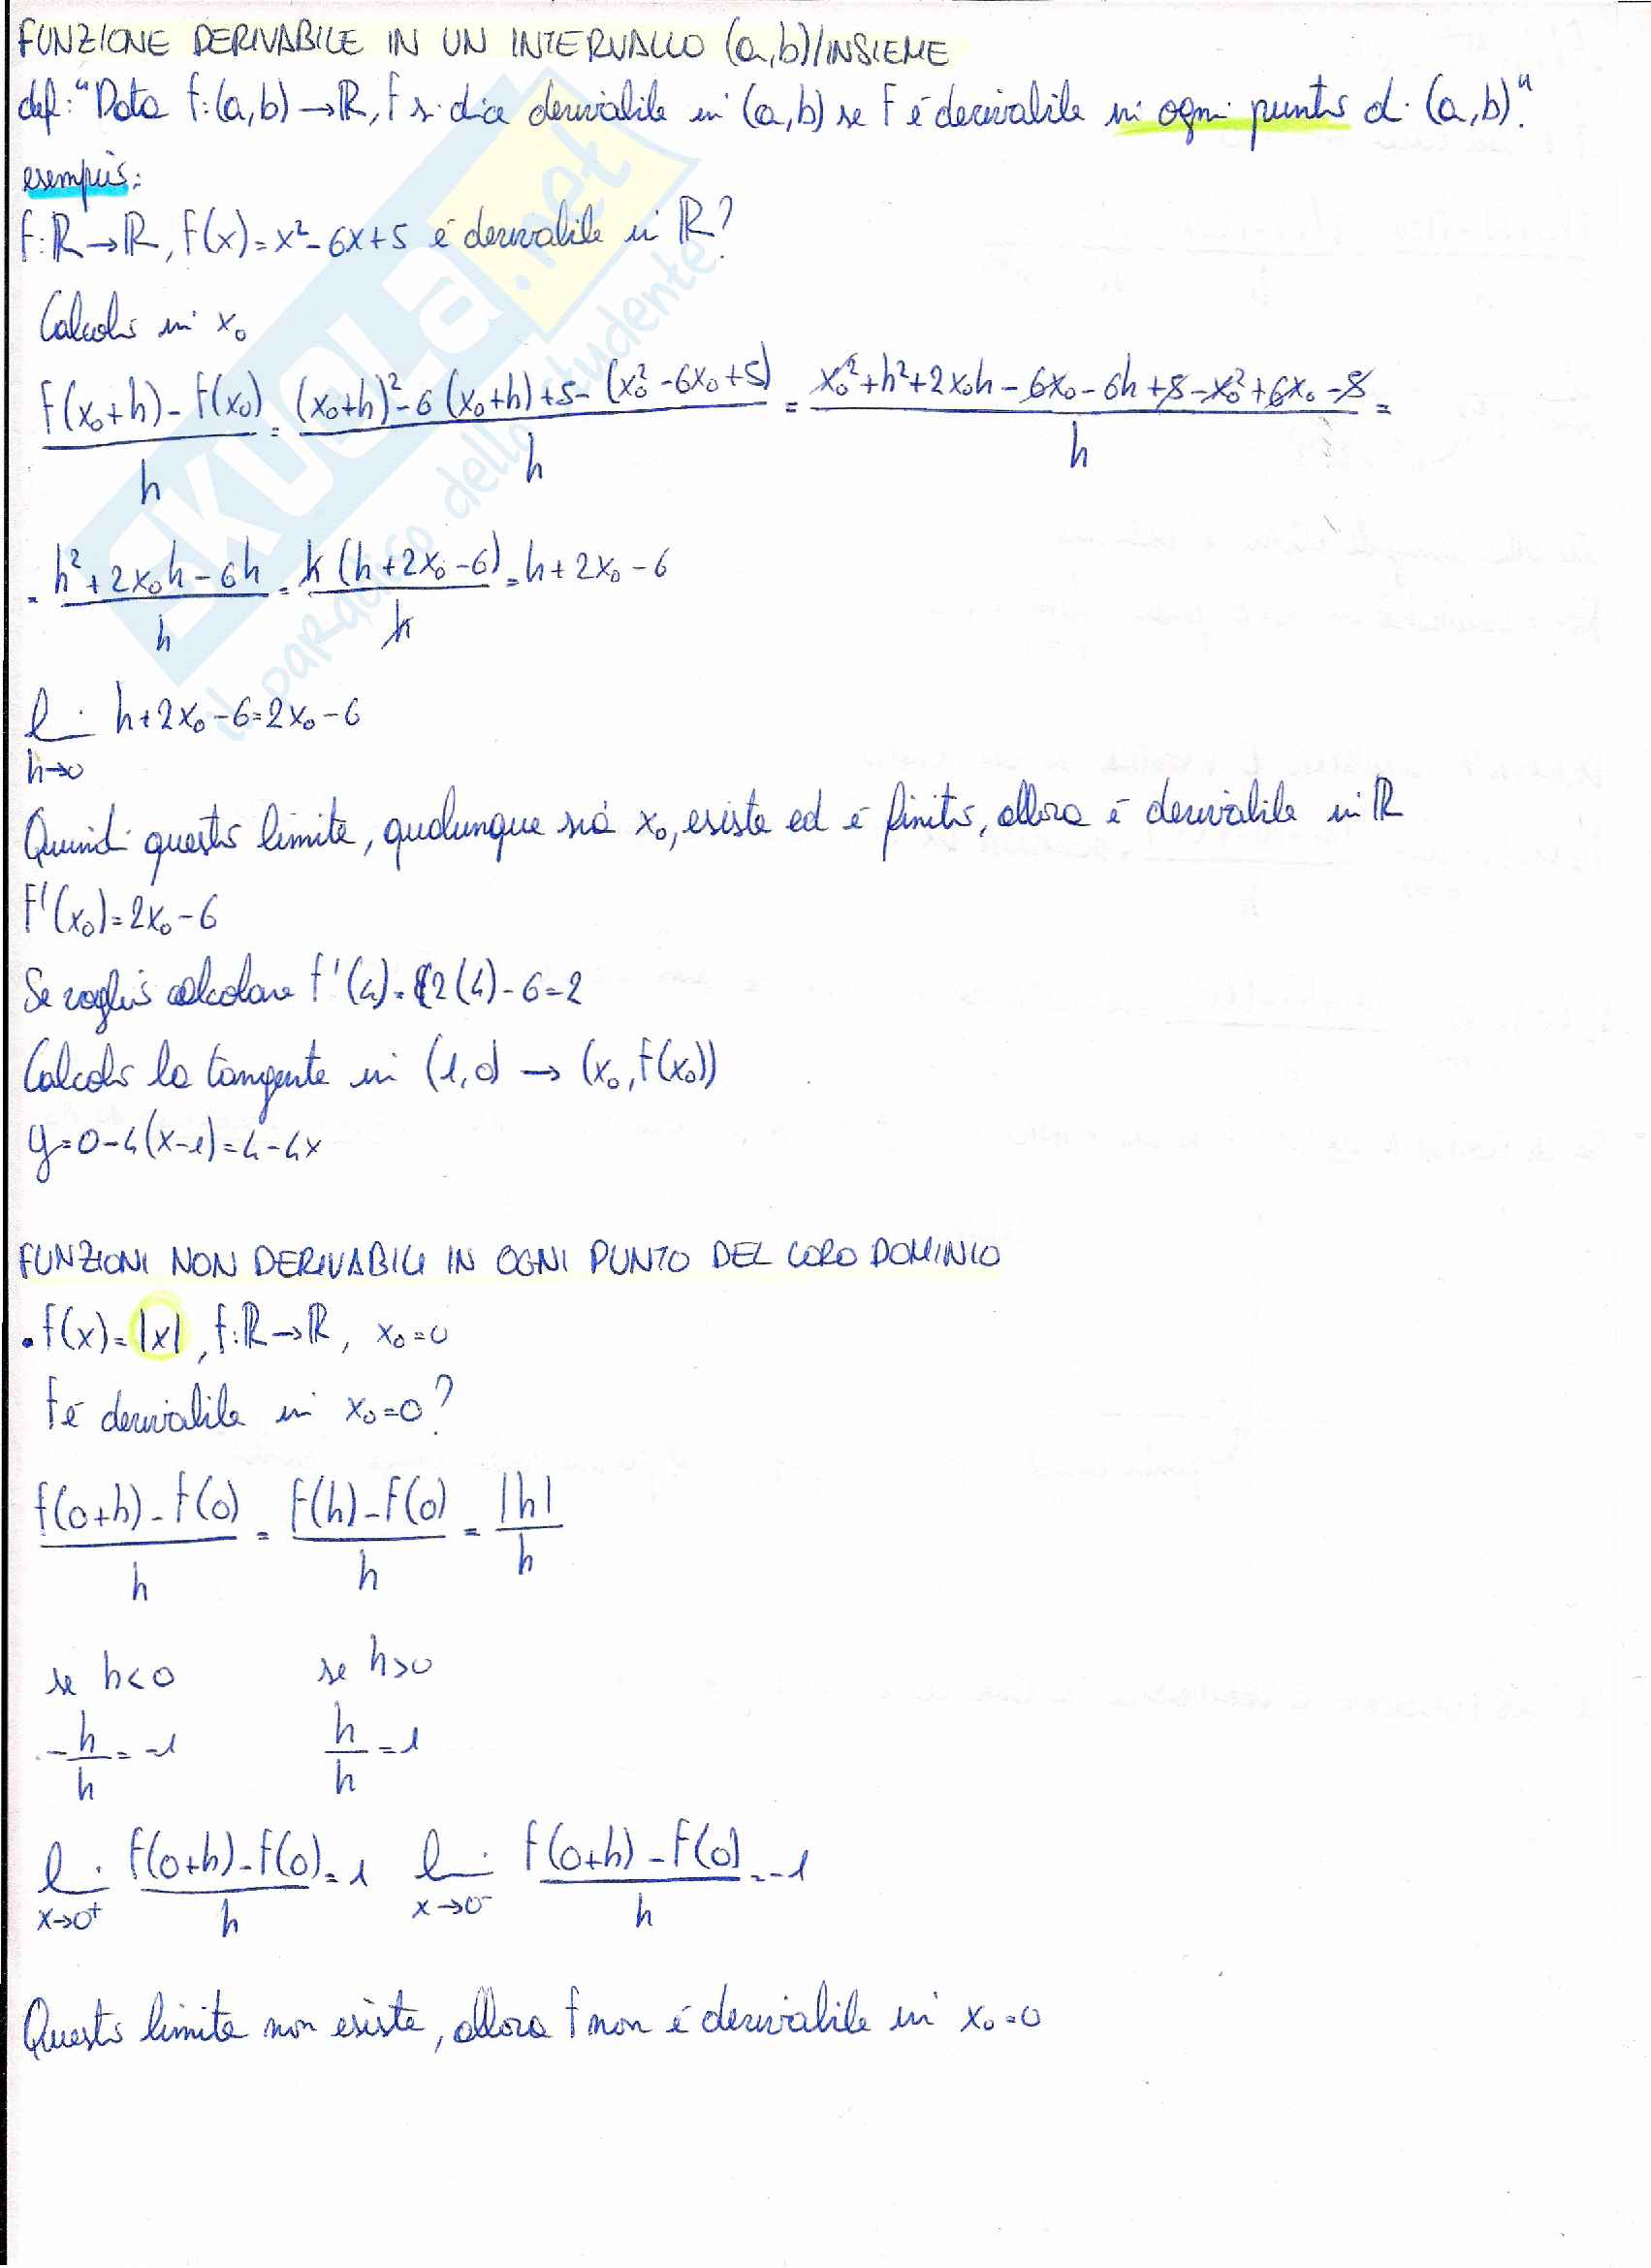 FUNZIONE DERIVABILE IN UN INTERVALLO (a,b)/INSIEME
def: "Data f:(a,b)→ℝ, f si dice derivabile in (a,b) se f é derivabile in ogni punto di (a,b)."
esempio:
f:ℝ→ℝ, f(x)=x²-6x+5 é derivabile in ℝ?
Calcolo in x₀
(f(x₀+h)-f(x₀))/h = ((x₀+h)²-6(x₀+h)+5-(x₀²-6x₀+5))/h = (x₀²+h²+2x₀h-6x₀-6h+5-x₀²+6x₀-5)/h =
= (h²+2x₀h-6h)/h = h(h+2x₀-6)/h = h+2x₀-6
lim h→0 h+2x₀-6=2x₀-6
Quindi questo limite, qualunque sia x₀, esiste ed é finito, allora é derivabile in ℝ
f'(x₀)=2x₀-6
Se voglio calcolare f'(4)=2(4)-6=2
Calcolo la tangente in (1,0) → (x₀,f(x₀))
y=0-4(x-1)=4-4x
FUNZIONI NON DERIVABILI IN OGNI PUNTO DEL LORO DOMINIO
• f(x)=|x|, f:ℝ→ℝ, x₀=0
f é derivabile in x₀=0?
(f(0+h)-f(0))/h = (f(h)-f(0))/h = |h|/h
se h<0 se h>0
-h/h=-1 h/h=1
lim x→0⁺ (f(0+h)-f(0))/h=1 lim x→0⁻ (f(0+h)-f(0))/h=-1
Questo limite non esiste, allora f non é derivabile in x₀=0
SKUOLA.net
il paradiso dello studente